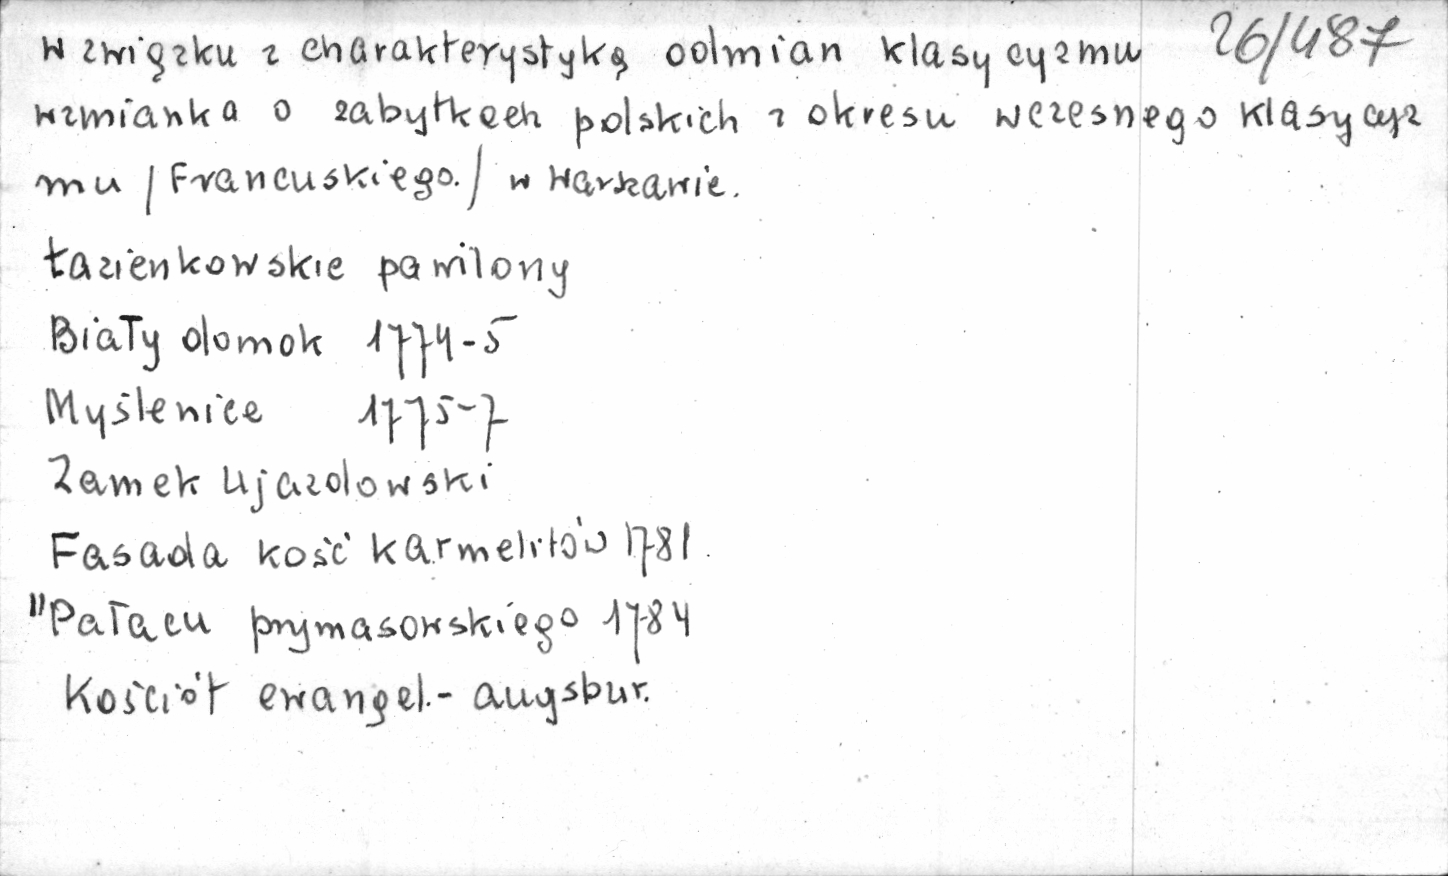 w związku z charakterystyką odmian klasycyzmu 26/487
wzmianka o zabytkach polskich z okresu wczesnego klasycyz
mu /Francuskiego./ w Warszawie.
Łazienkowskie pawilony
Biały domek 1774-5
Myślenice 1775-7
Zamek Ujazdowski
Fasada kość Karmelitów 1781.
"Pałacu prymasowskiego 1784
Kościół ewangel.- augsbur.